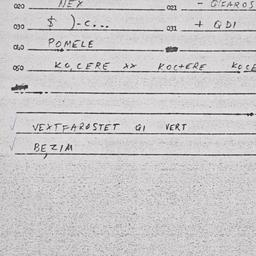 020 NEX 021
030 $ )-c... 031 + QDI
040 POMELE
050 KO,CERE XX KOCTERE KOCE
VEXTFAROSTET GI VERT
BEZIM